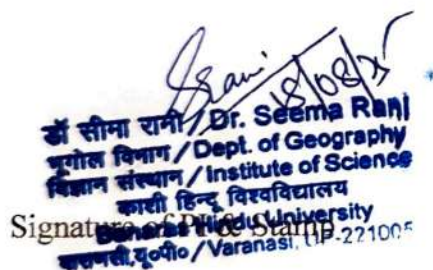 SRani
18/08/25
डॉ सीमा रानी / Dr. Seema Rani
भूगोल विभाग / Dept. of Geography
विज्ञान संस्थान / Institute of Science
काशी हिन्दू विश्वविद्यालय
Banaras Hindu University
वाराणसी, यू०पी० / Varanasi, UP-221005
Signature of PI & Stamp